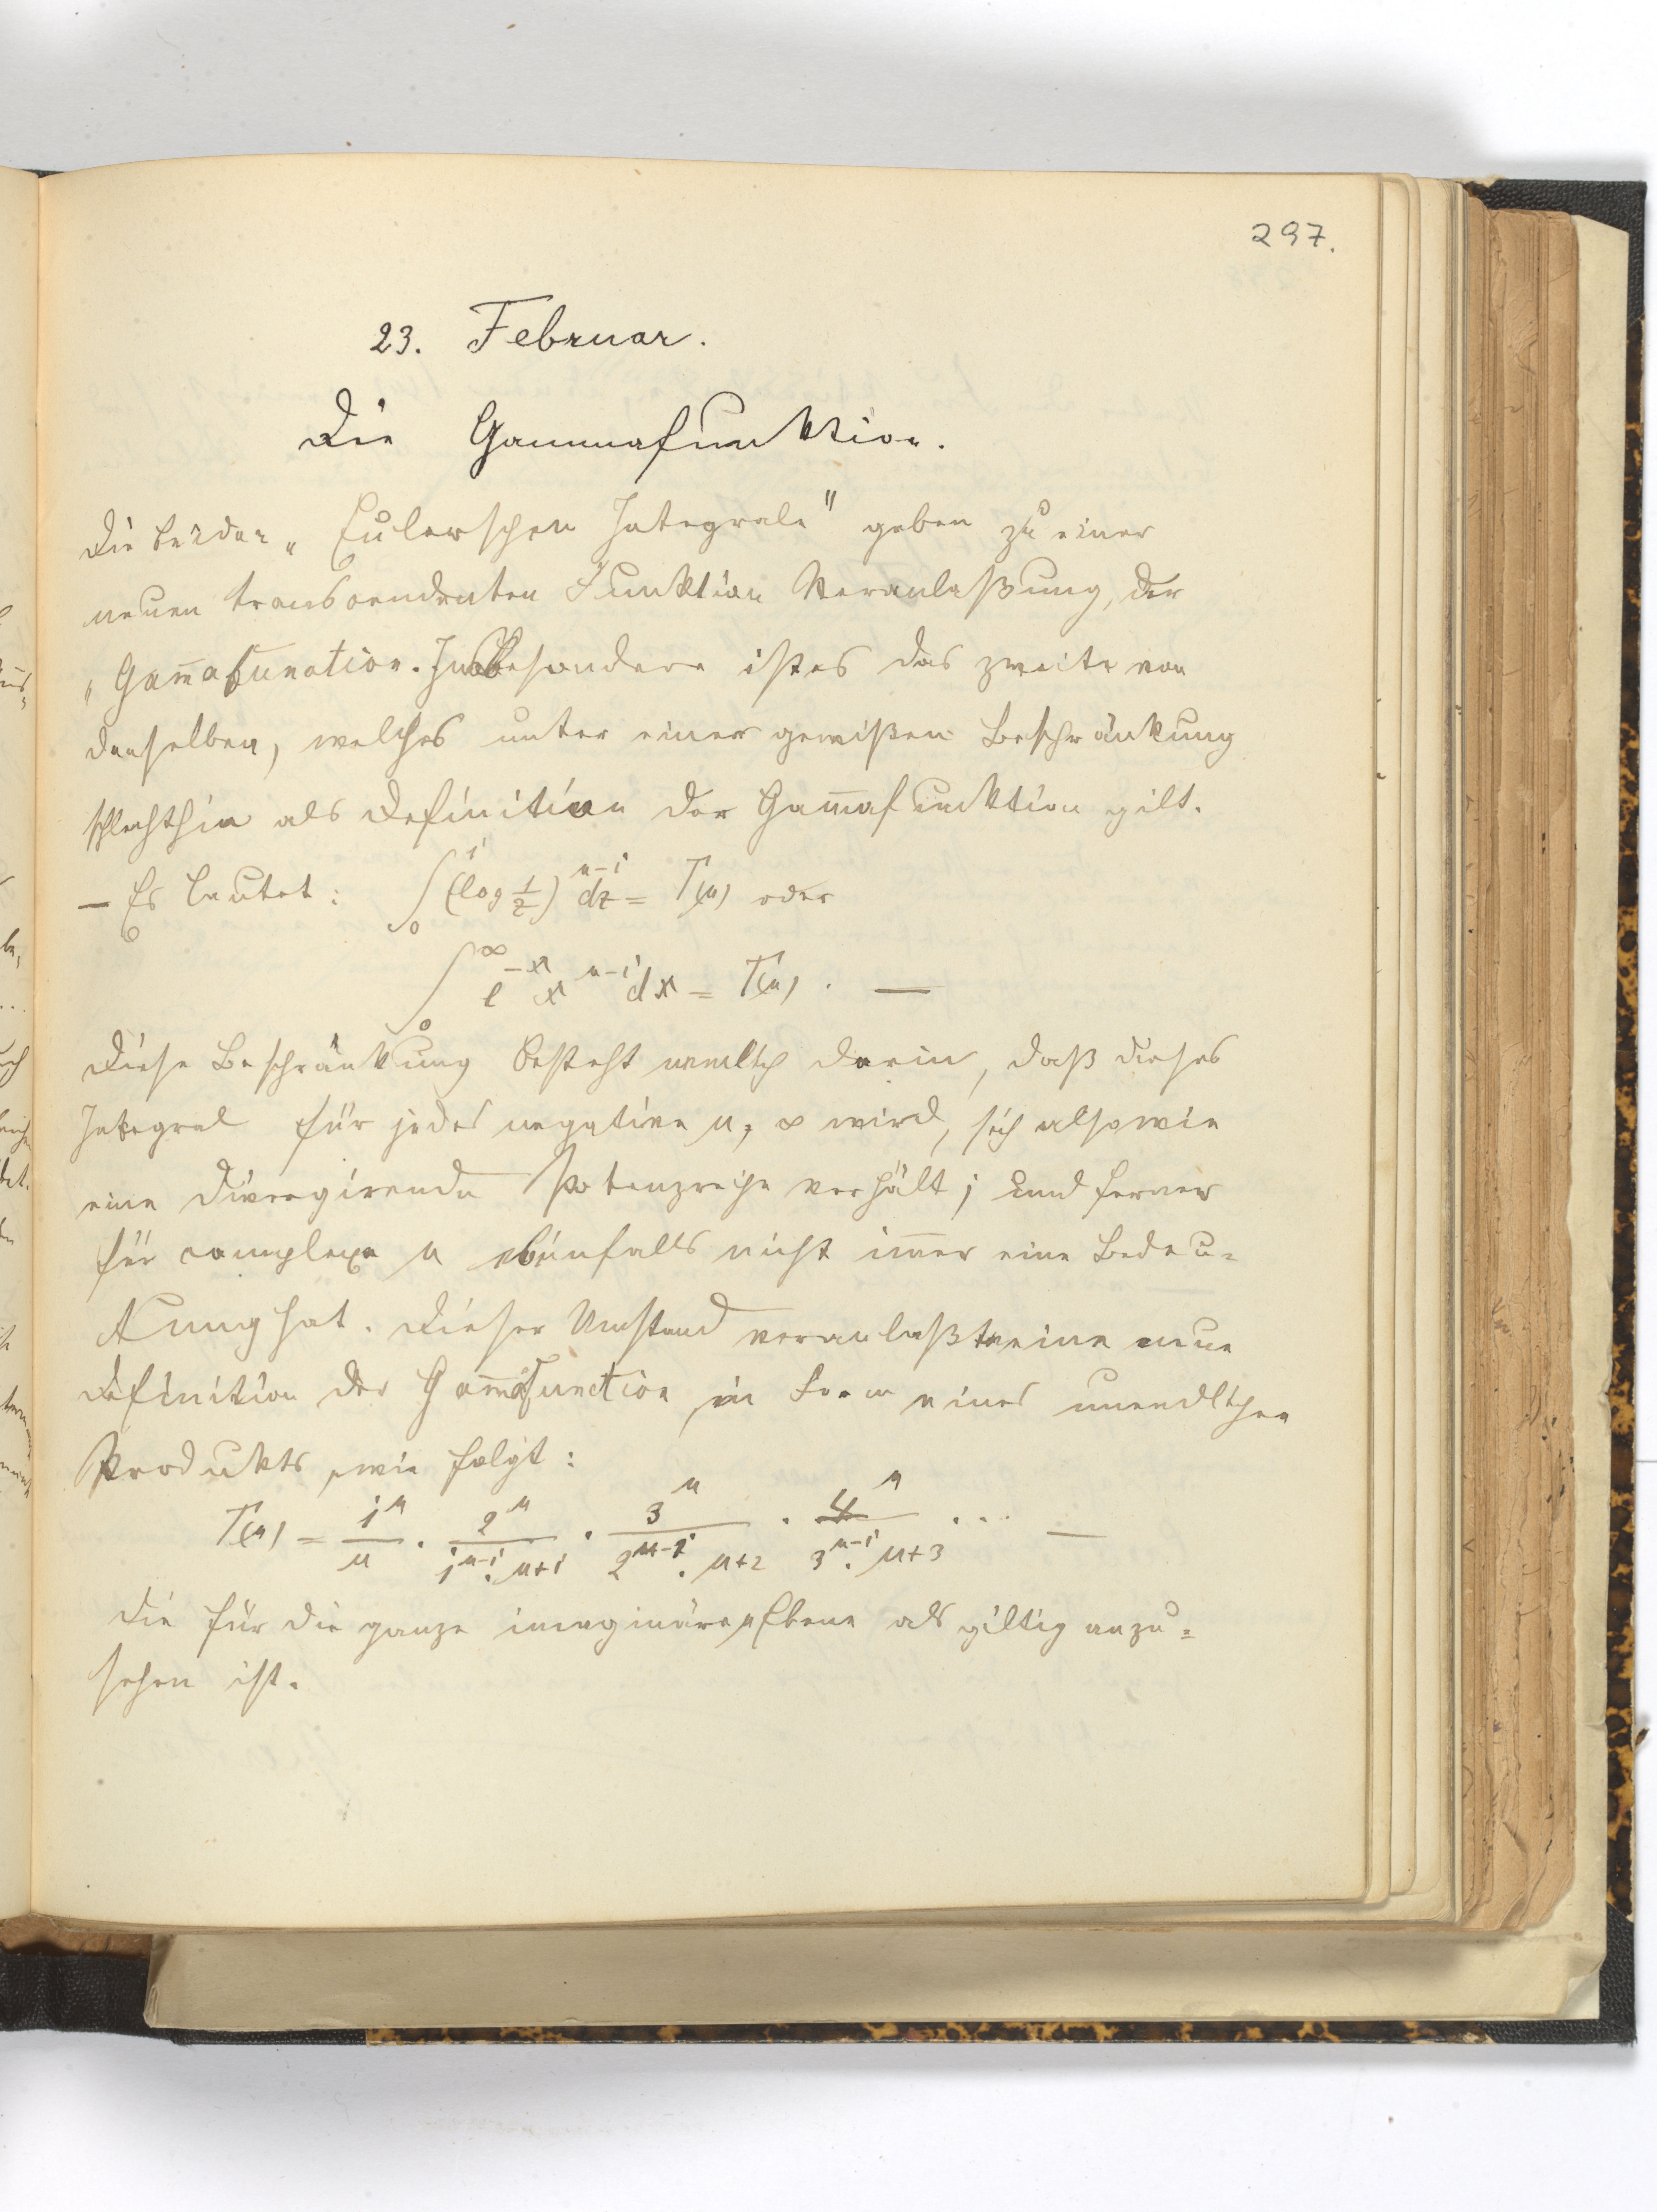 297.
23. Februar.
Die Gammafunktion.
Die beiden „Eulerschen Integrale" geben zu einer
neuen transcendenten Funktion Veranlaßung, der
„Gam̅afunction. Insbesondere ist es das zweite von
denselben, welches unter einer gewißen Beschränkung
schlechthin als Definition der Gam̅afunktion gilt.
— Es lautet: ∫₀¹ (log 1/z)ⁿ⁻¹ dz = Γ(n) oder
∫₀^∞ e⁻ˣ xⁿ⁻¹ dx = Γ(n). —
Diese Beschränkung besteht nemlich darin, daß dieses
Integral für jedes negative n, ∞ wird, sich also wie
eine divergirende Potenzreihe verhält; und ferner
für complexe n ebenfalls nicht im̅er eine Bedeu=
tung hat. Dieser Umstand veranlaßte eine neue
Definition der Gam̅afunction in Form eines unendlichen
Produkts, wie folgt:
Γ(n) = 1ⁿ/n · 2ⁿ/(1ⁿ⁻¹· n+1) · 3ⁿ/(2ⁿ⁻¹· n+2) · 4ⁿ/(3ⁿ⁻¹· n+3) · ... —
die für die ganze imaginäre Ebene als giltig anzu=
sehen ist.